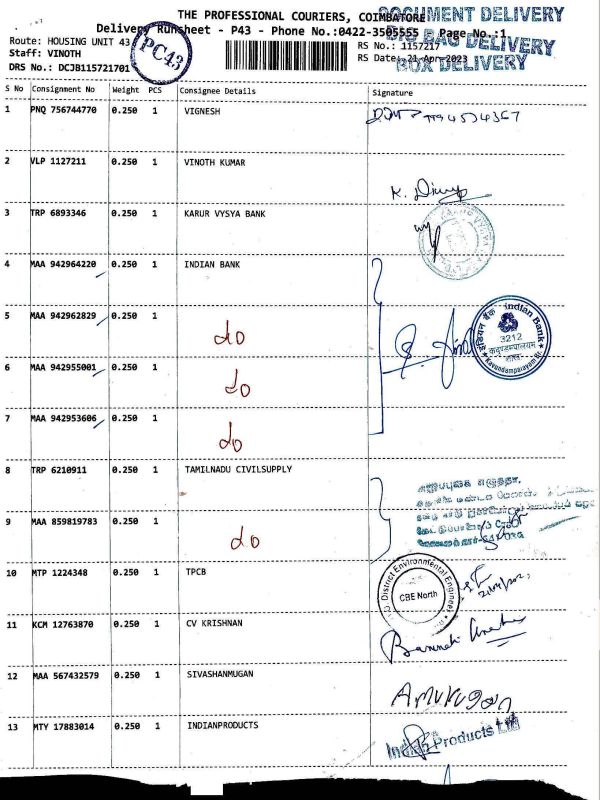 THE PROFESSIONAL COURIERS, COIMBATORE
DOCUMENT DELIVERY
Delivery Runsheet - P43 - Phone No.:0422-3505555 Page No.:1
BIG BAG DELIVERY
BOX DELIVERY
Route: HOUSING UNIT 43
RS No.: 1157217
Staff: VINOTH
RS Date: 21-Apr-2023
DRS No.: DCJB115721701
PC43
S No Consignment No Weight PCS Consignee Details Signature
1 PNQ 756744770 0.250 1 VIGNESH
2 VLP 1127211 0.250 1 VINOTH KUMAR
3 TRP 6893346 0.250 1 KARUR VYSYA BANK
4 MAA 942964220 0.250 1 INDIAN BANK
5 MAA 942962829 0.250 1 do
इंडियन बैंक Indian Bank
3212
शाखा
Kavundampalayam Br.
6 MAA 942955001 0.250 1 do
7 MAA 942953606 0.250 1 do
8 TRP 6210911 0.250 1 TAMILNADU CIVILSUPPLY
9 MAA 859819783 0.250 1 do
10 MTP 1224348 0.250 1 TPCB
District Environmental Engineer
CBE North
11 KCM 12763870 0.250 1 CV KRISHNAN
12 MAA 567432579 0.250 1 SIVASHANMUGAN
13 MTY 17883014 0.250 1 INDIANPRODUCTS
Indian Products Ltd